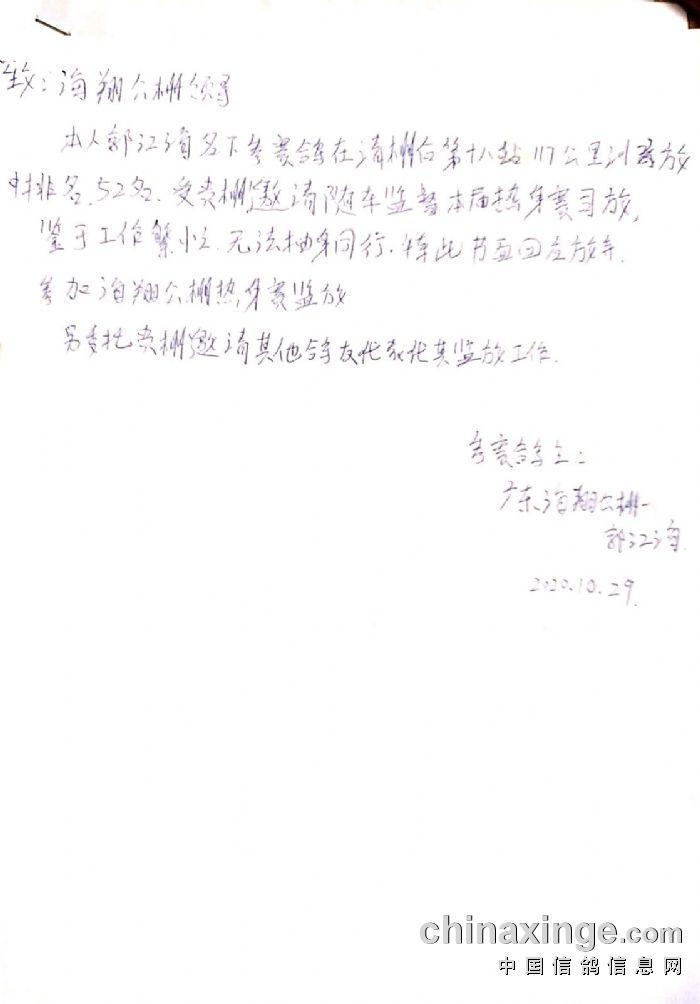 致：海翔公棚领导
本人郭江海名下参赛鸽在清棚后第十八站117公里训放
中排名52名．受贵棚邀请随车监督本届热身赛司放，
鉴于工作繁忙．无法抽身同行．特此书面回应放弃．
参加海翔公棚热身赛监放
另委托贵棚邀请其他鸽友代我代其监放工作．
参赛鸽主：
广东海翔公棚
郭江海
2020.10.29.
chinaxinge.com
中国信鸽信息网